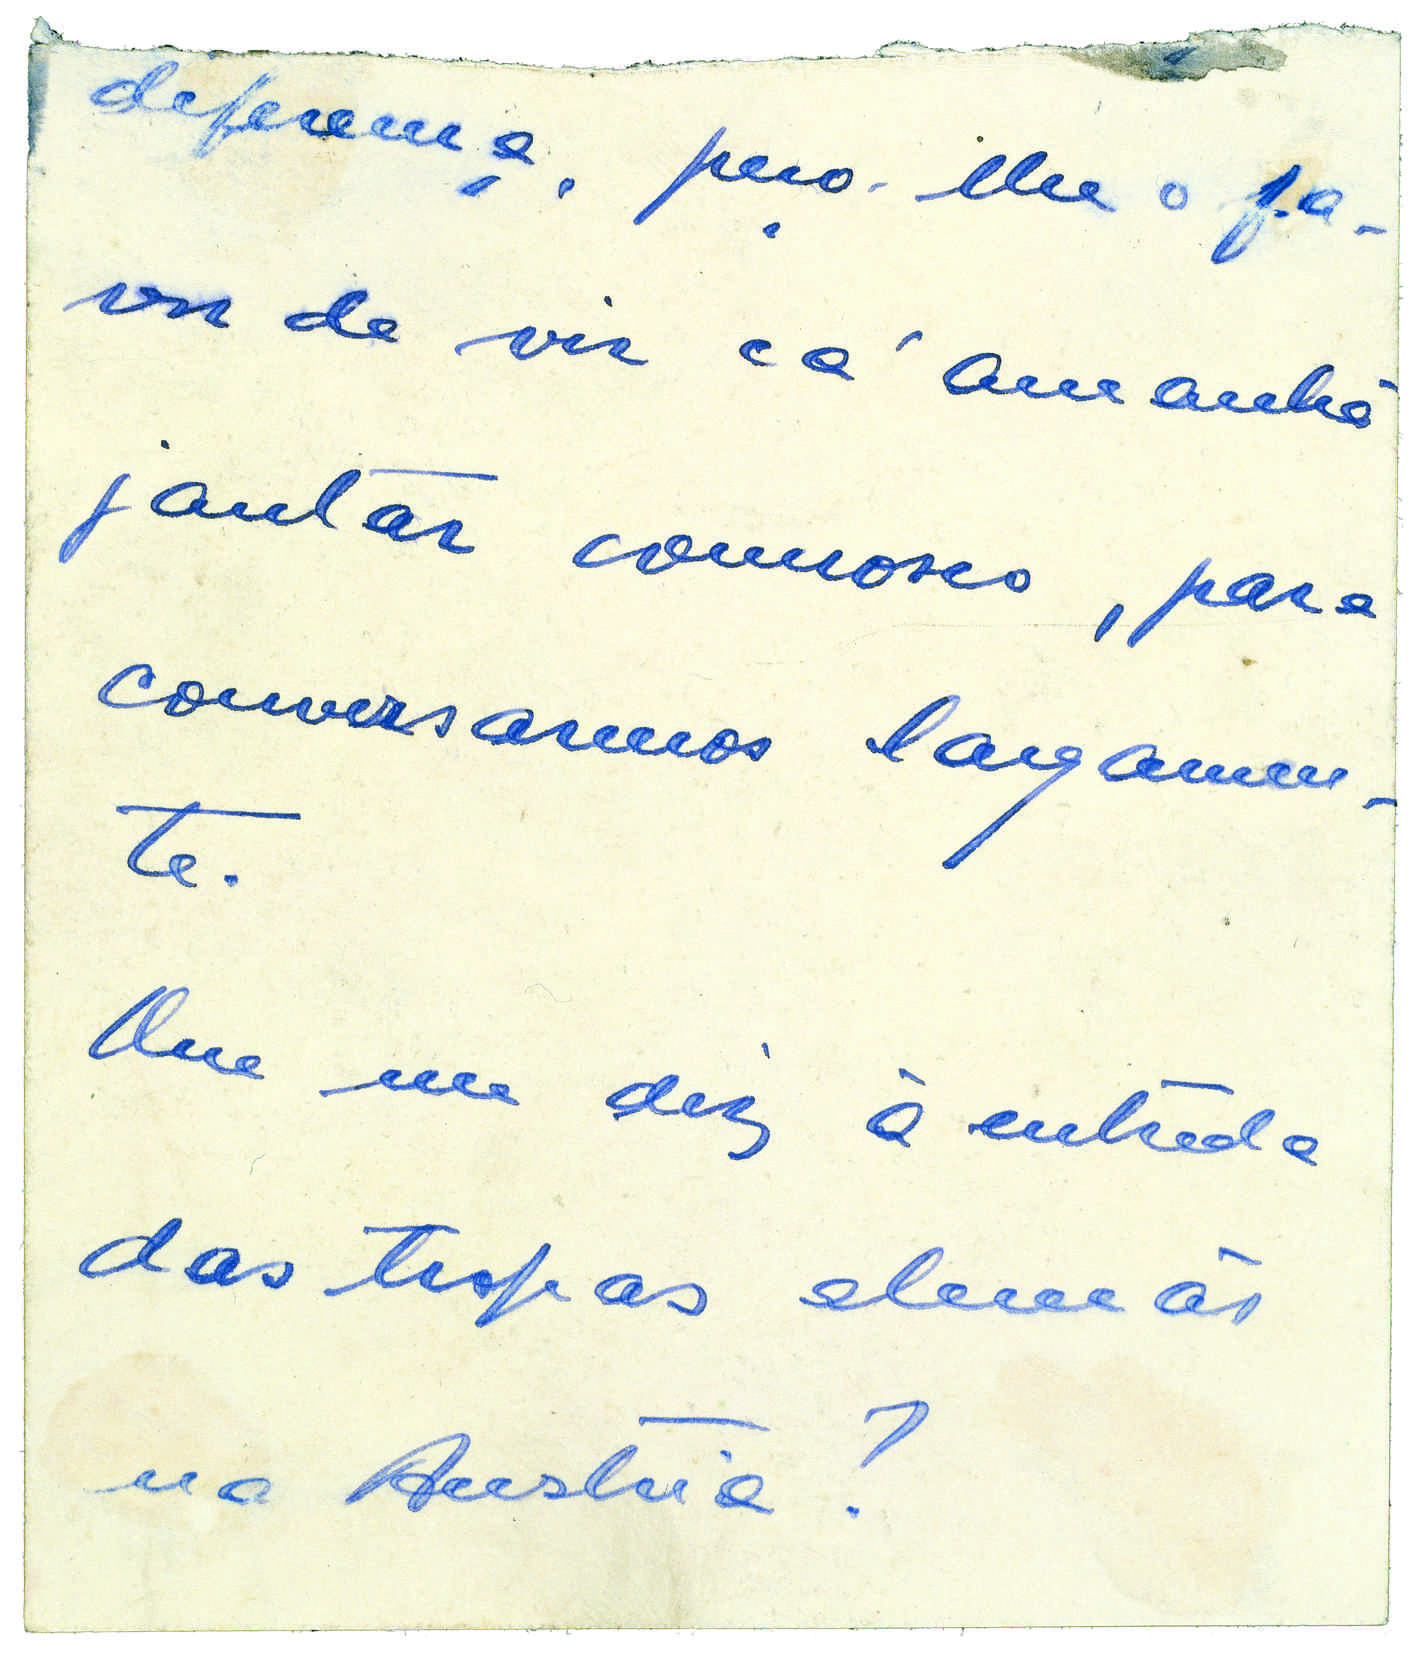 deferença, peço-lhe o fa-
vor de vir cá amanhã
jantar connosco, para
conversarmos largamen-
te.
Que me diz à entrada
das tropas alemãs
na Austria?